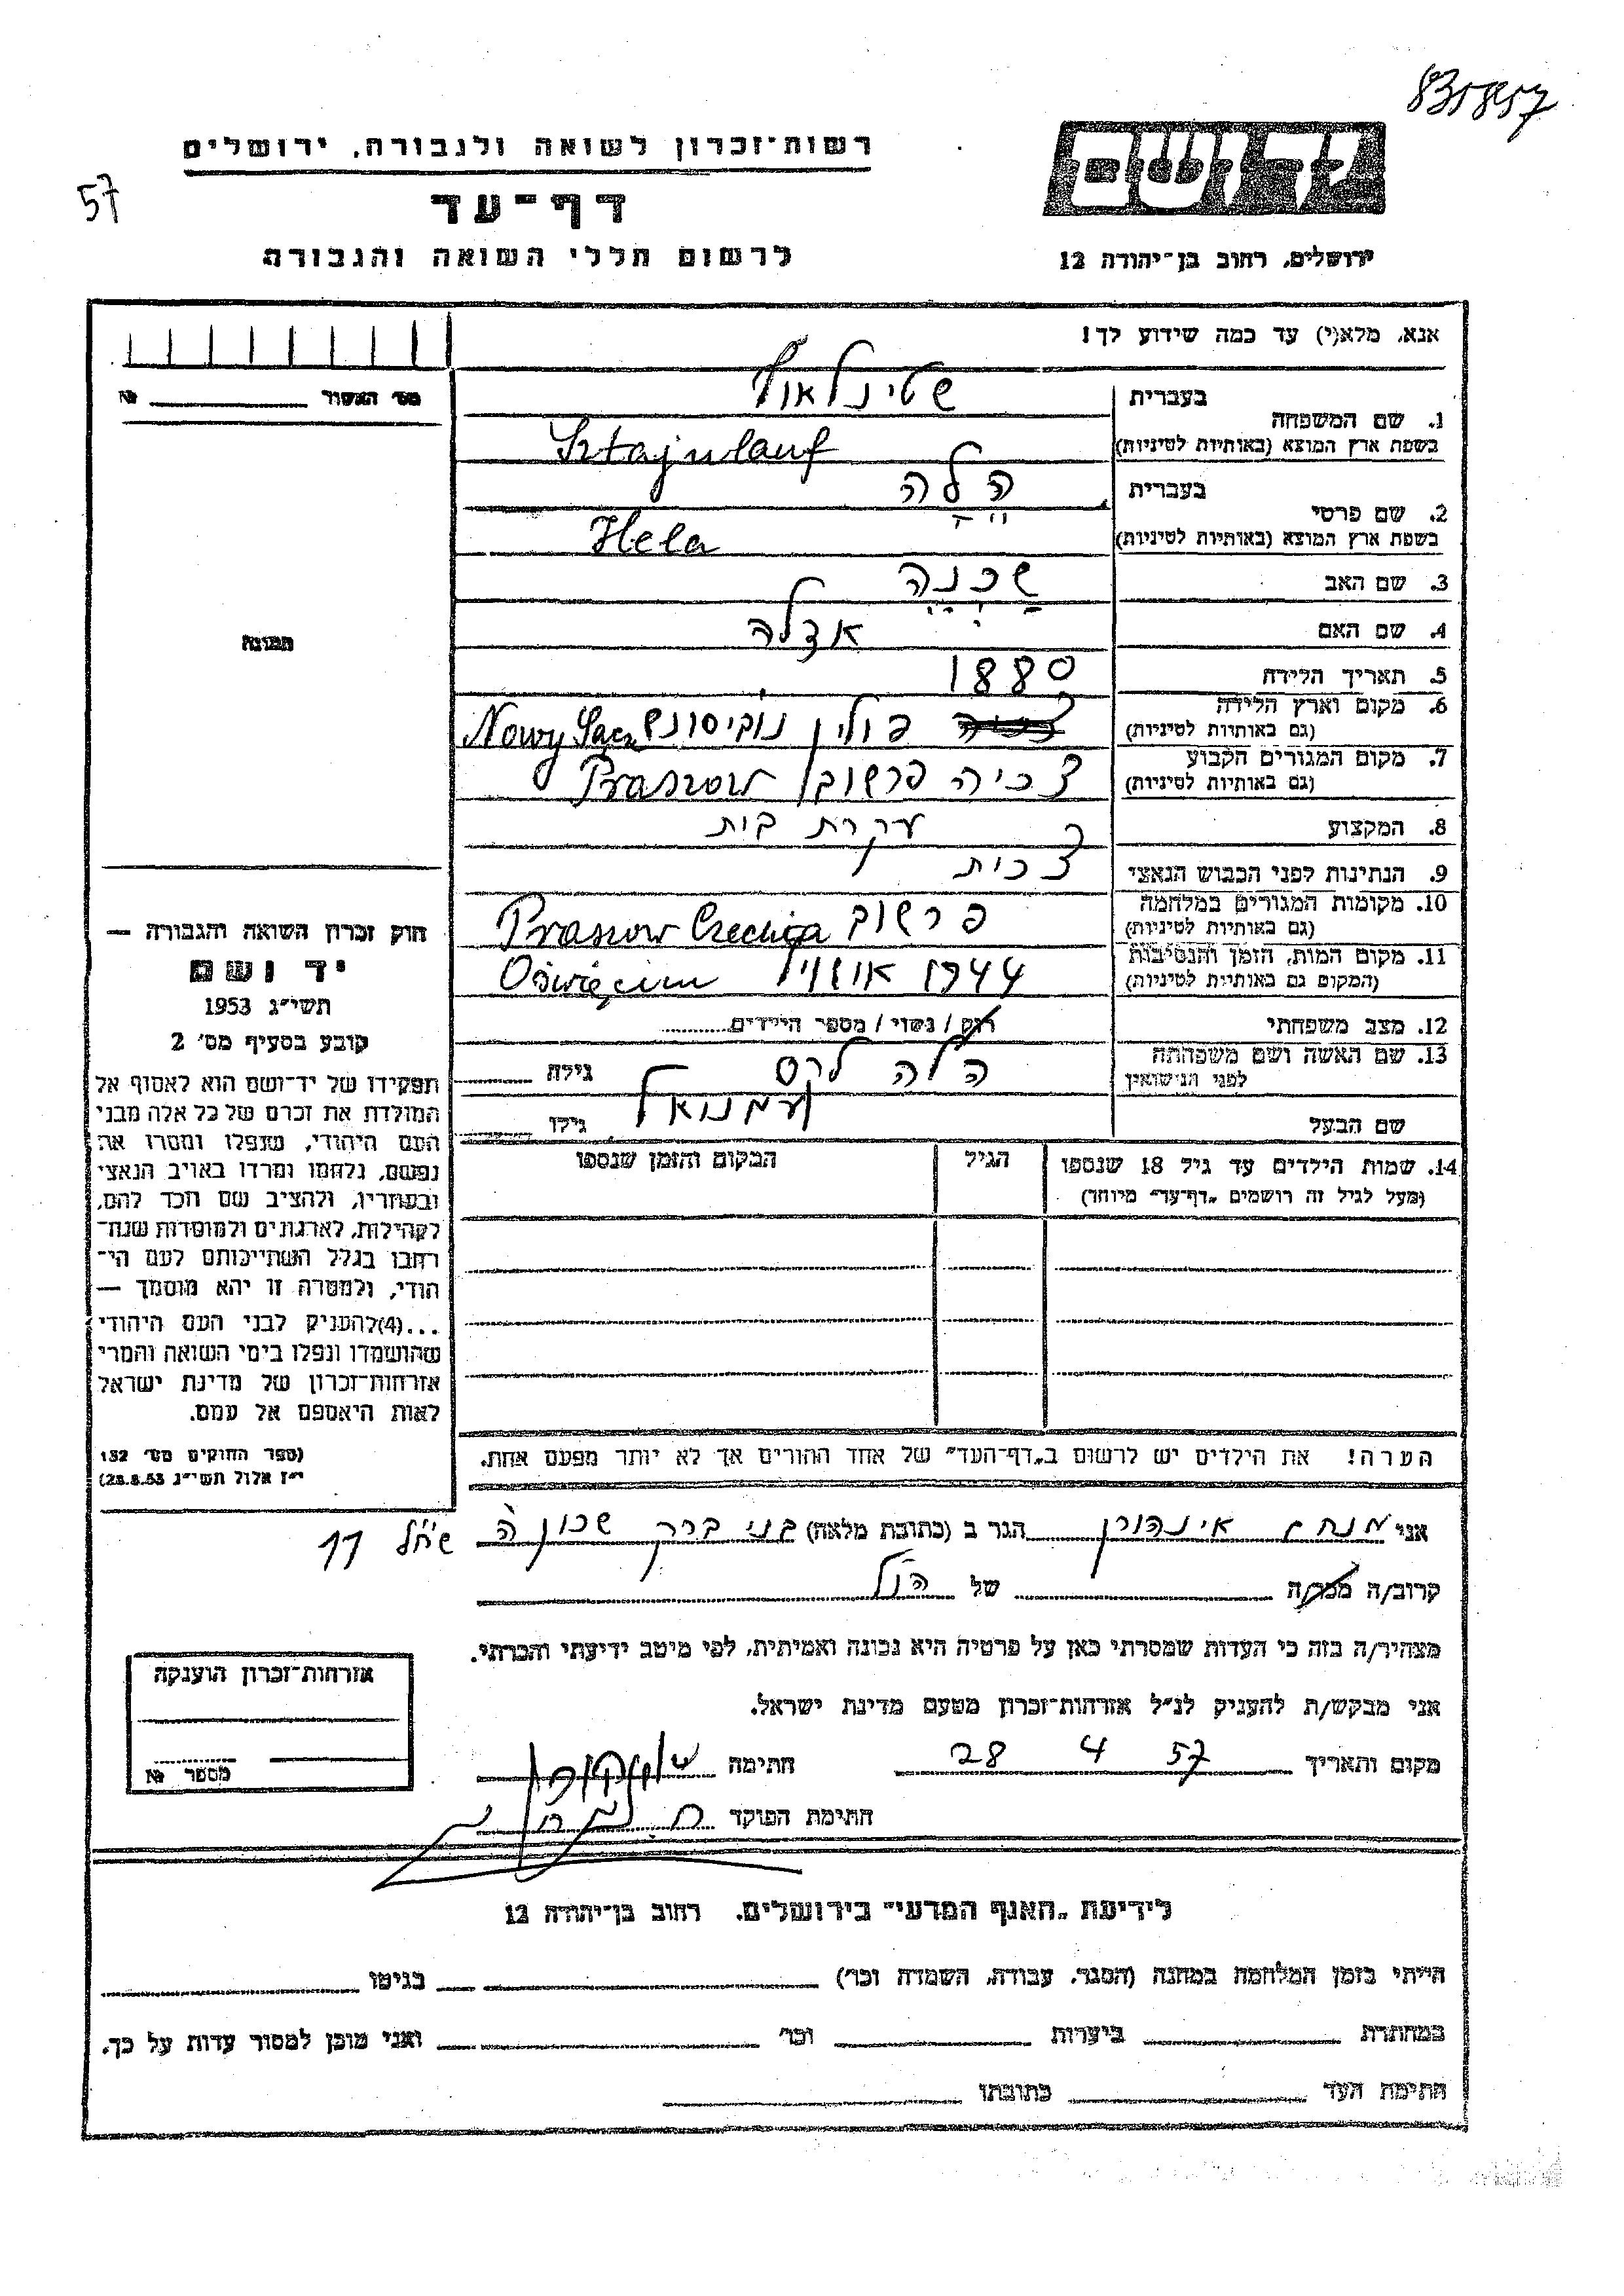 835857
57
רשות־זכרון לשואה ולגבורה, ירושלים
דף־עד
לרשום חללי השואה והגבורה
יד ושם
ירושלים, רחוב בן־יהודה 12
אנא, מלא(י) עד כמה שידוע לך!
מס׳ האשור №
1. שם המשפחה
בעברית שטינלאוף
בשפת ארץ המוצא (באותיות לטיניות) Sztajnlauf
2. שם פרטי
בעברית הלה
בשפת ארץ המוצא (באותיות לטיניות) Hela
3. שם האב שכנה
4. שם האם אדלה
5. תאריך הלידה 1880
6. מקום וארץ הלידה (גם באותיות לטיניות) פולין נובי סונש Nowy Sącz
7. מקום המגורים הקבוע (גם באותיות לטיניות) צ׳כיה פרשוב Praszow
8. המקצוע עקרת בית
9. הנתינות לפני הכבוש הנאצי צ׳כית
10. מקומות המגורים במלחמה (גם באותיות לטיניות) פרשוב Praszow Czechia
11. מקום המות, הזמן והנסיבות (המקום גם באותיות לטיניות) 1944 Oświęcim
12. מצב משפחתי רוק/נשוי/מספר הילדים
13. שם האשה ושם משפחתה לפני הנישואין הלה גילה
שם הבעל עמנואל גילו
14. שמות הילדים עד גיל 18 שנספו
(מעל לגיל זה רושמים „דף־עד״ מיוחד)
הגיל
המקום והזמן שנספו
תמונה
חוק זכרון השואה והגבורה —
יד ושם
תשי״ג 1953
קובע בסעיף מס׳ 2
תפקידו של יד־ושם הוא לאסוף אל
המולדת את זכרם של כל אלה מבני
העם היהודי, שנפלו ומסרו את
נפשם, נלחמו ומרדו באויב הנאצי
ובעוזריו, ולהציב שם וזכר להם,
לקהילות, לארגונים ולמוסדות שנח־
רבו בגלל השתייכותם לעם הי־
הודי, ולמטרה זו יהא מוסמך —
...(4)להעניק לבני העם היהודי
שהושמדו ונפלו בימי השואה והמרי
אזרחות־זכרון של מדינת ישראל
לאות היאספם אל עמם.
(ספר החוקים מס׳ 132
י״ז אלול תשי״ג 28.8.53)
הערה! את הילדים יש לרשום ב„דף־העד״ של אחד ההורים אך לא יותר מפעם אחת.
אני מנחם איינהורן הגר ב (כתובת מלאה) בני ברק שכון ה׳ 11
קרוב/ה מכר/ה של הנ״ל
מצהיר/ה בזה כי העדות שמסרתי כאן על פרטיה היא נכונה ואמיתית, לפי מיטב ידיעתי והכרתי.
אני מבקש/ת להעניק לנ״ל אזרחות־זכרון מטעם מדינת ישראל.
מקום ותאריך 28 4 57 חתימה
חתימת הפוקד
אזרחות־זכרון הוענקה
מספר №
לידיעת „האגף המדעי״ בירושלים, רחוב בן־יהודה 12
הייתי בזמן המלחמה במחנה (הסגר, עבודה, השמדה וכו׳) בגיטו
במחתרת ביערות וכו׳ ואני מוכן למסור עדות על כך.
חתימת העד כתובתו